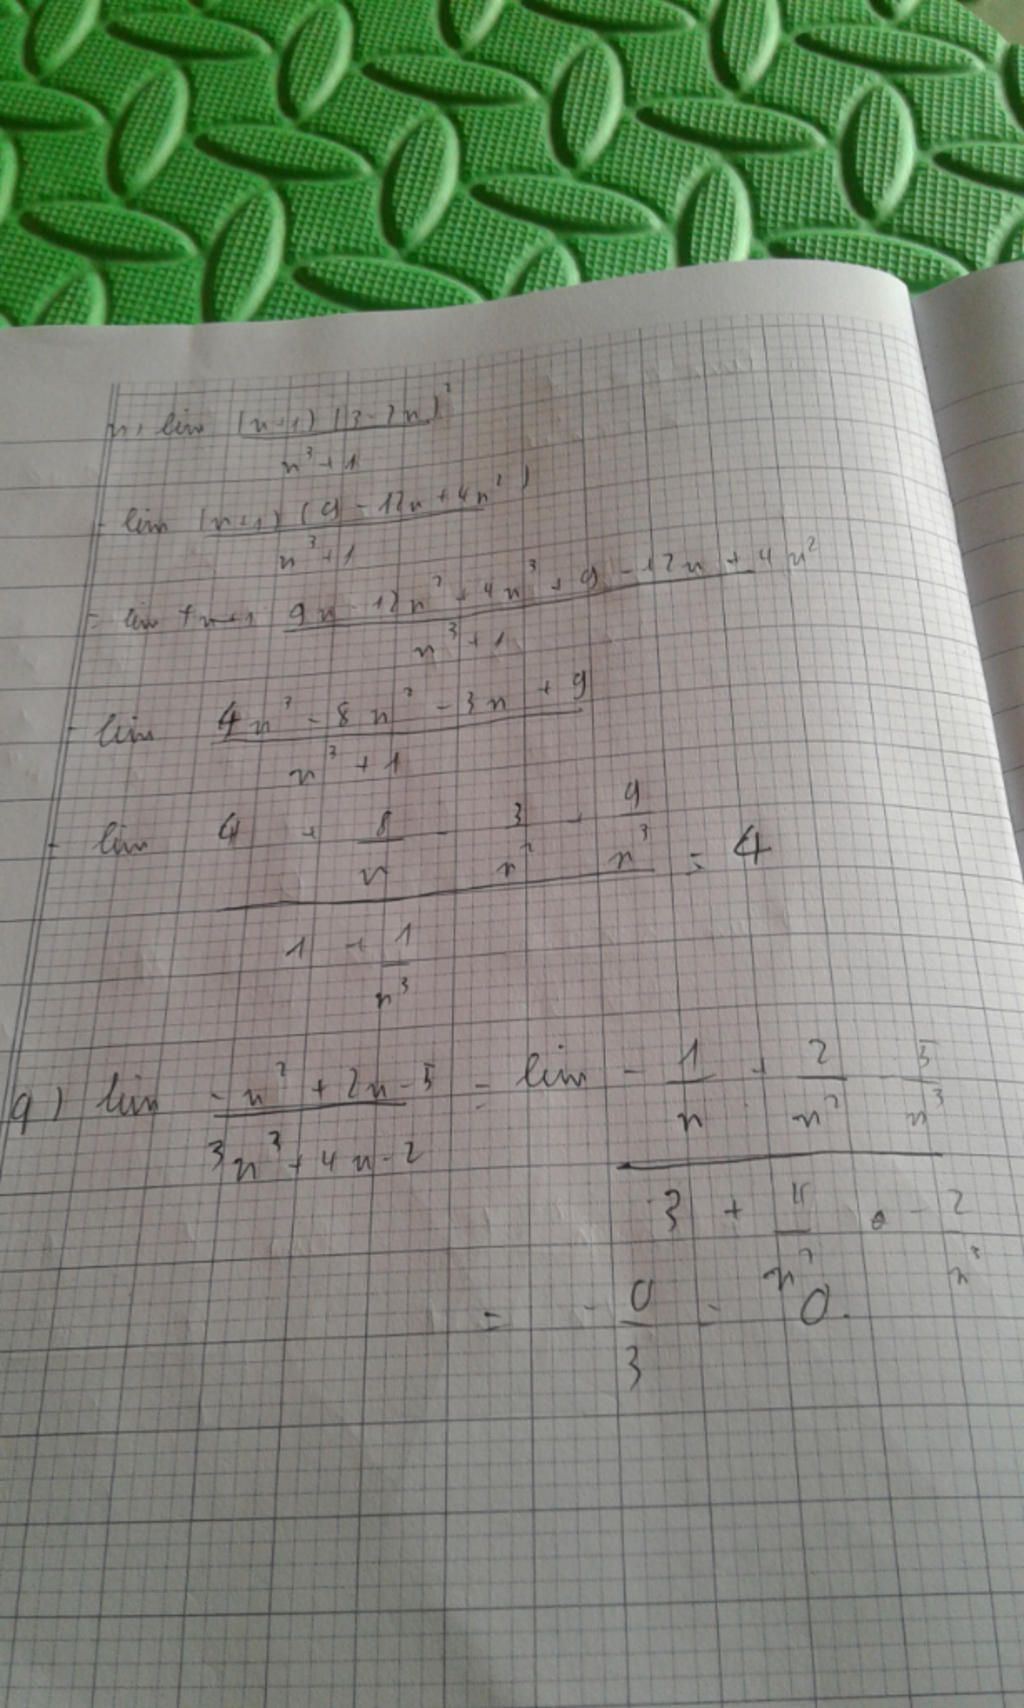 lim (n+1)(3-2n)²
n³+1
= lim (n+1)(9-12n+4n²)
n³+1
= lim 9n-12n²+4n³+9-12n+4n²
n³+1
= lim 4n³-8n²-3n+9
n³+1
= lim 4 + 8/n - 3/n² + 9/n³ = 4
1 + 1/n³
q) lim -n²+2n-5 = lim -1/n + 2/n² 5/n³
3n³+4n-2
3 + 4/n² - 2/n³
= -0/3 = 0.